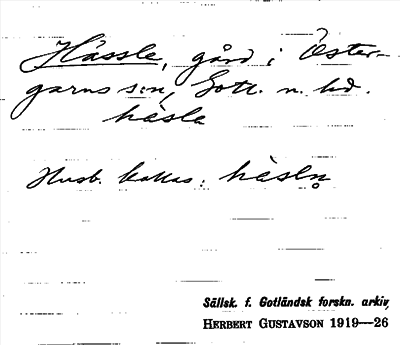 Hässle, gård i Öster-
garns s:n, Gotl. n. hd.
hèsle
Husb. kallas: hèsln̥
Sällsk. f. Gotländsk forskn. arkiv,
HERBERT GUSTAVSON 1919—26